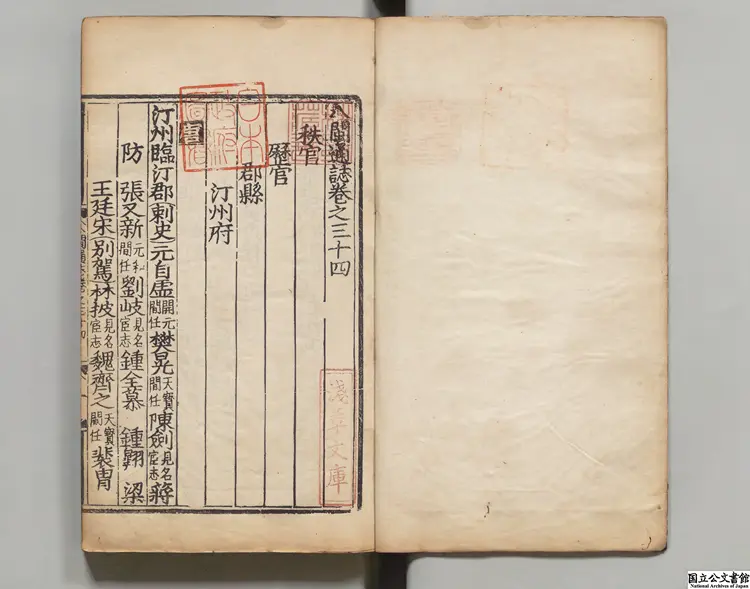 八閩通誌卷之三十四
秩官
歷官
郡縣
汀州府
汀州臨汀郡刺史元自虛開元間任樊晃天寶間任陳劍見名宦志蔣
防 張又新元和間任劉岐見名宦志鍾全慕 鍾翱 梁
王廷宋別駕林披見名宦志魏齊之天寶間任裴冑
淺草文庫
日本政府圖書
国立公文書館
National Archives of Japan